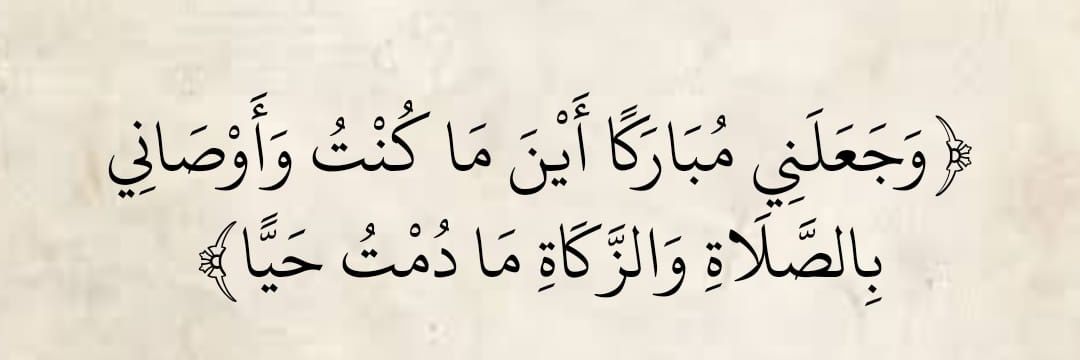 ﴿وَجَعَلَنِي مُبَارَكًا أَيْنَ مَا كُنْتُ وَأَوْصَانِي
بِالصَّلَاةِ وَالزَّكَاةِ مَا دُمْتُ حَيًّا﴾